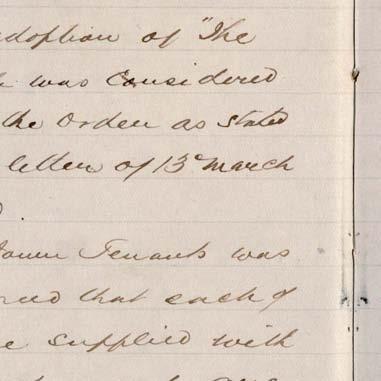 adoption of "The
was Considered
the Order as stated
letter of 13th March
Town Tenants was
that each of
supplied with